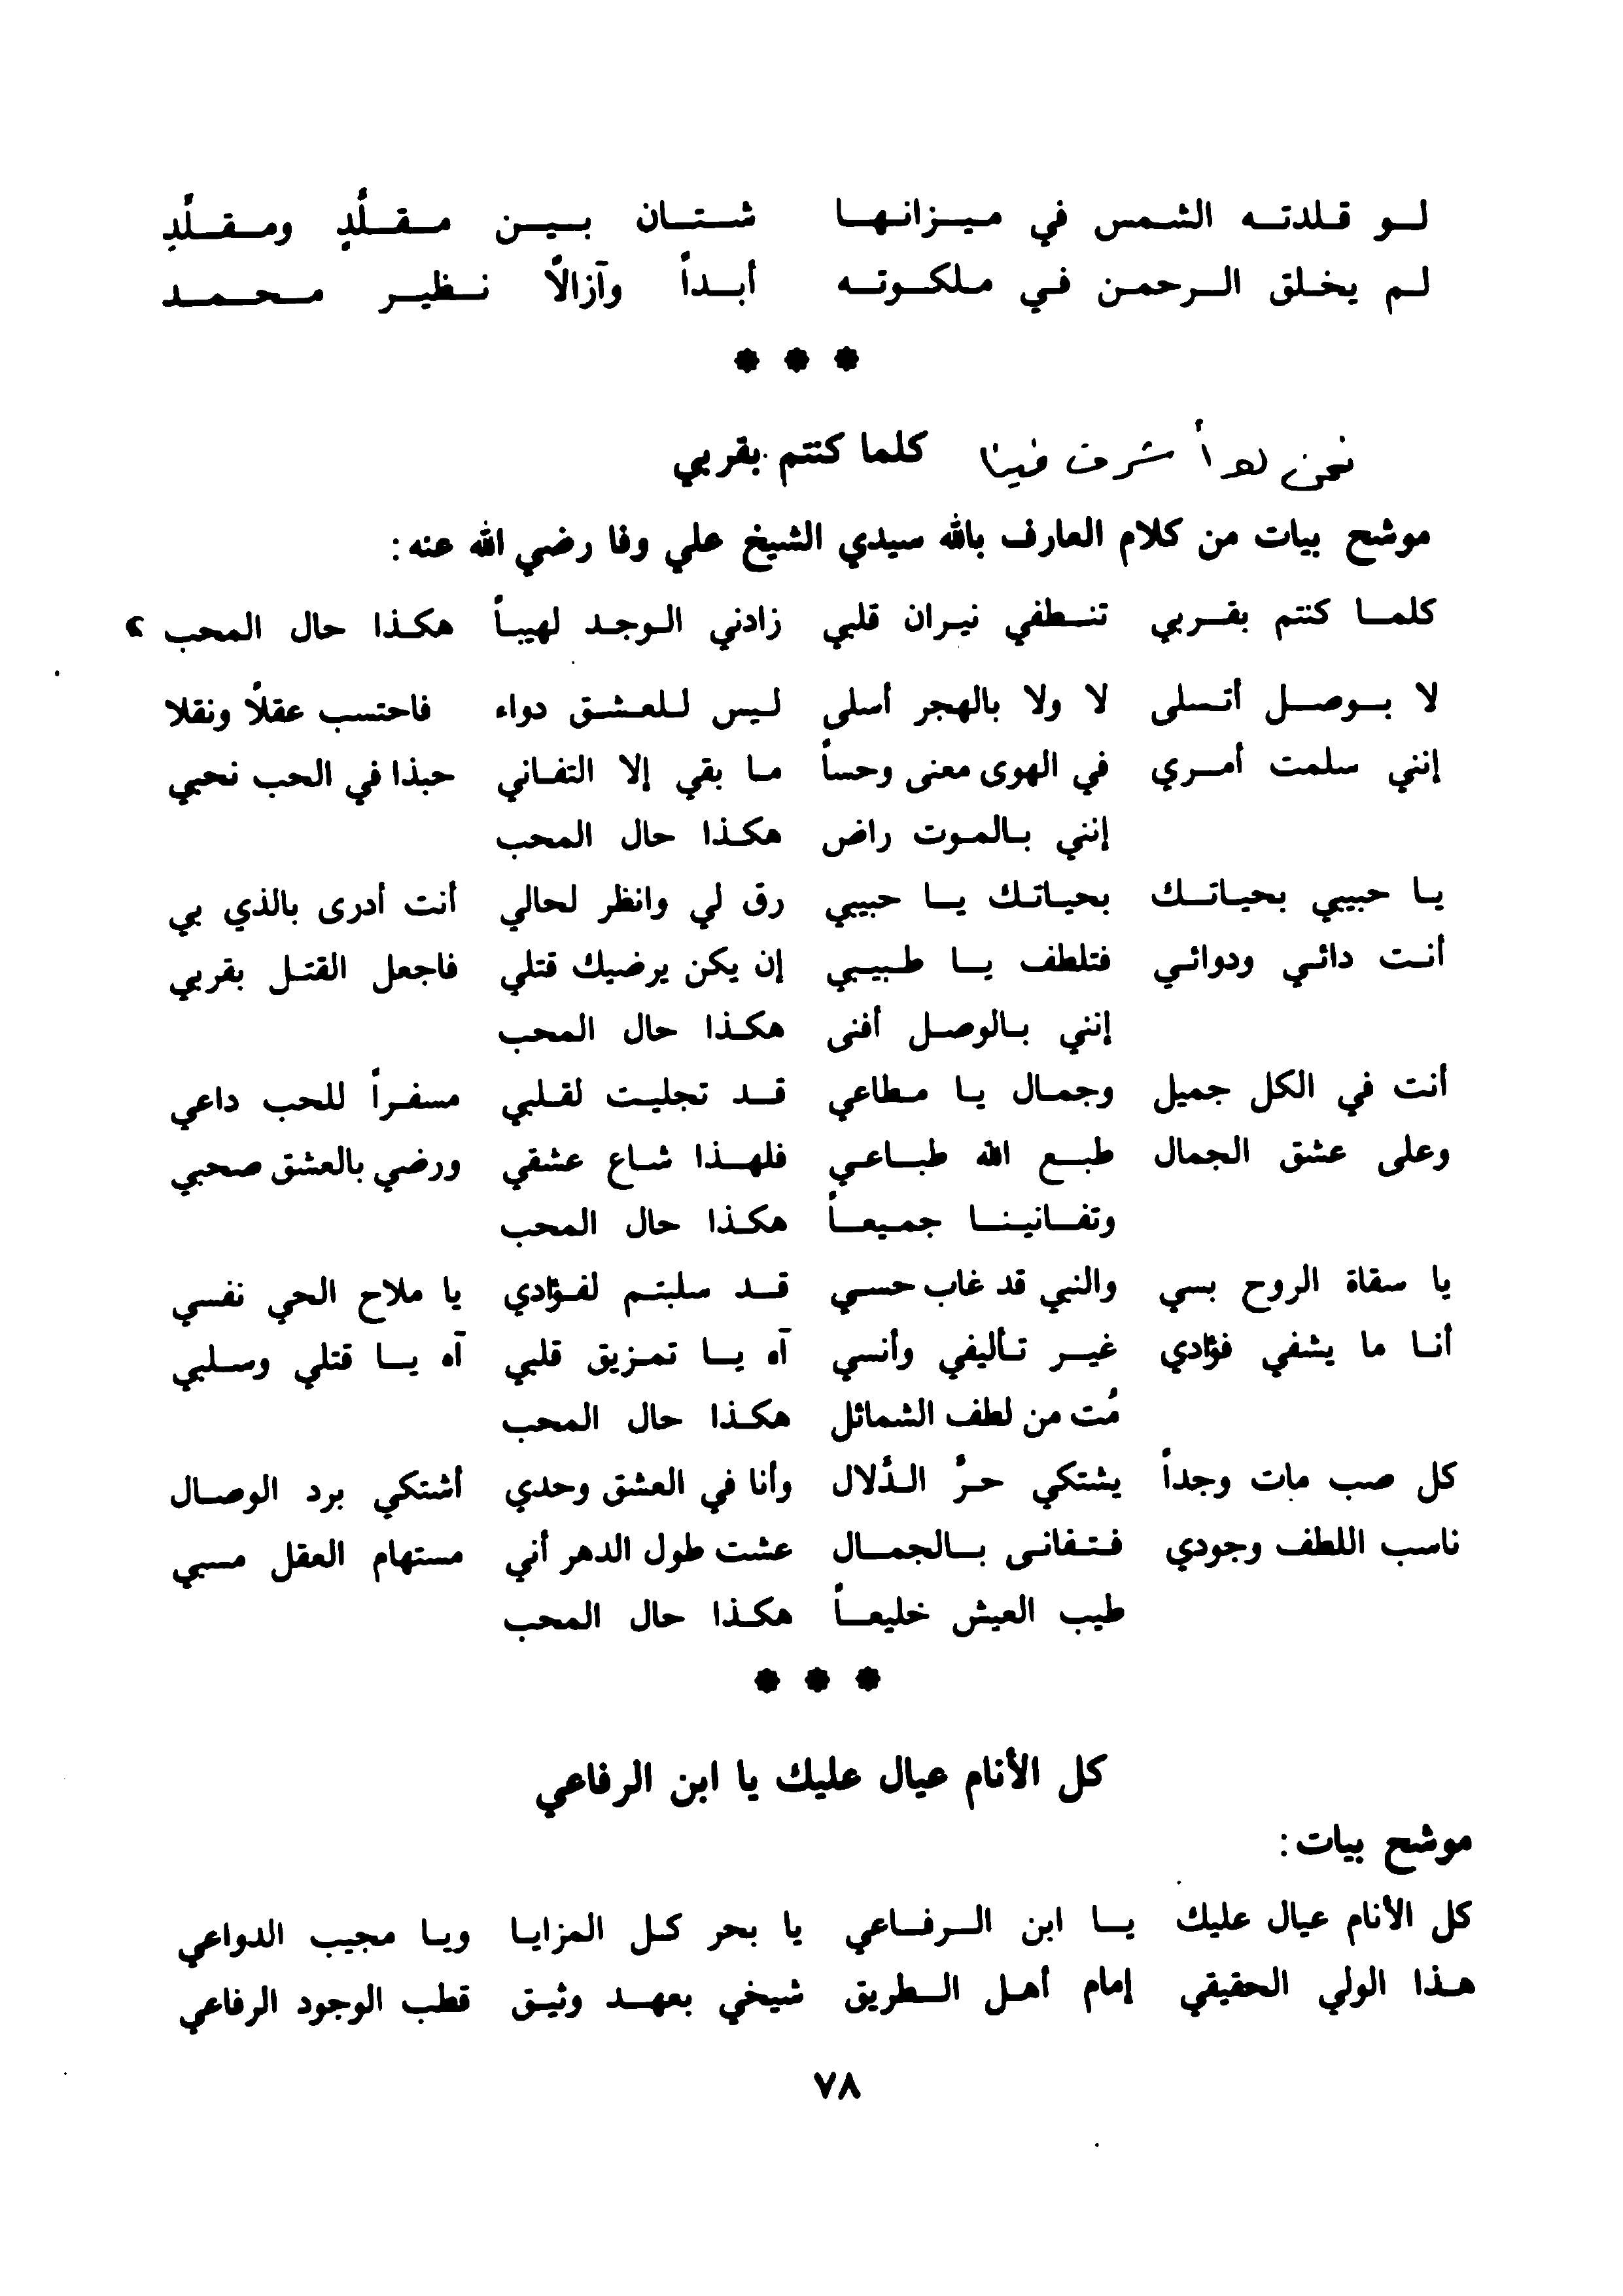 لو قلدته الشمس في ميزانها شتان بين مقلَّدٍ ومقلَّدِ
لم يخلق الرحمن في ملكوته أبداً وآزالاً نظير محمد
* * *
نحن لما أشرف فينا كلما كنتم بقربي
موشح بيات من كلام العارف بالله سيدي الشيخ علي وفا رضي الله عنه:
كلما كنتم بقربي تنطفي نيران قلبي زادني الوجد لهيباً هكذا حال المحب
لا بوصل أتسلى لا ولا بالهجر أسلى ليس للعشق دواء فاحتسب عقلاً ونقلا
إنني سلمت أمري في الهوى معنى وحساً ما بقي إلا التفاني حبذا في الحب نحبي
إنني بالموت راض هكذا حال المحب
يا حبيبي بحياتك بحياتك يا حبيبي رق لي وانظر لحالي أنت أدرى بالذي بي
أنت دائي ودوائي فتلطف يا طبيبي إن يكن يرضيك قتلي فاجعل القتل بقربي
إنني بالوصل أفنى هكذا حال المحب
أنت في الكل جميل وجمال يا مطاعي قد تجليت لقلبي مسفراً للحب داعي
وعلى عشق الجمال طبع الله طباعي فلهذا شاع عشقي ورضي بالعشق صحبي
وتفانينا جميعاً هكذا حال المحب
يا سقاة الروح بسي والنبي قد غاب حسي قد سلبتم لفؤادي يا ملاح الحي نفسي
أنا ما يشفي فؤادي غير تأليفي وأنسي آه يا تمزيق قلبي آه يا قتلي وسلبي
مُت من لطف الشمائل هكذا حال المحب
كل صب مات وجداً يشتكي حرَّ الدَّلال وأنا في العشق وحدي أشتكي برد الوصال
ناسب اللطف وجودي فتفانى بالجمال عشت طول الدهر أني مستهام العقل مسبي
طيب العيش خليعاً هكذا حال المحب
* * *
كل الأنام عيال عليك يا ابن الرفاعي
موشح بيات:
كل الأنام عيال عليك يا ابن الرفاعي يا بحر كل المزايا ويا مجيب الدواعي
هذا الولي الحقيقي إمام أهل الطريق شيخي بعهد وثيق قطب الوجود الرفاعي
٧٨